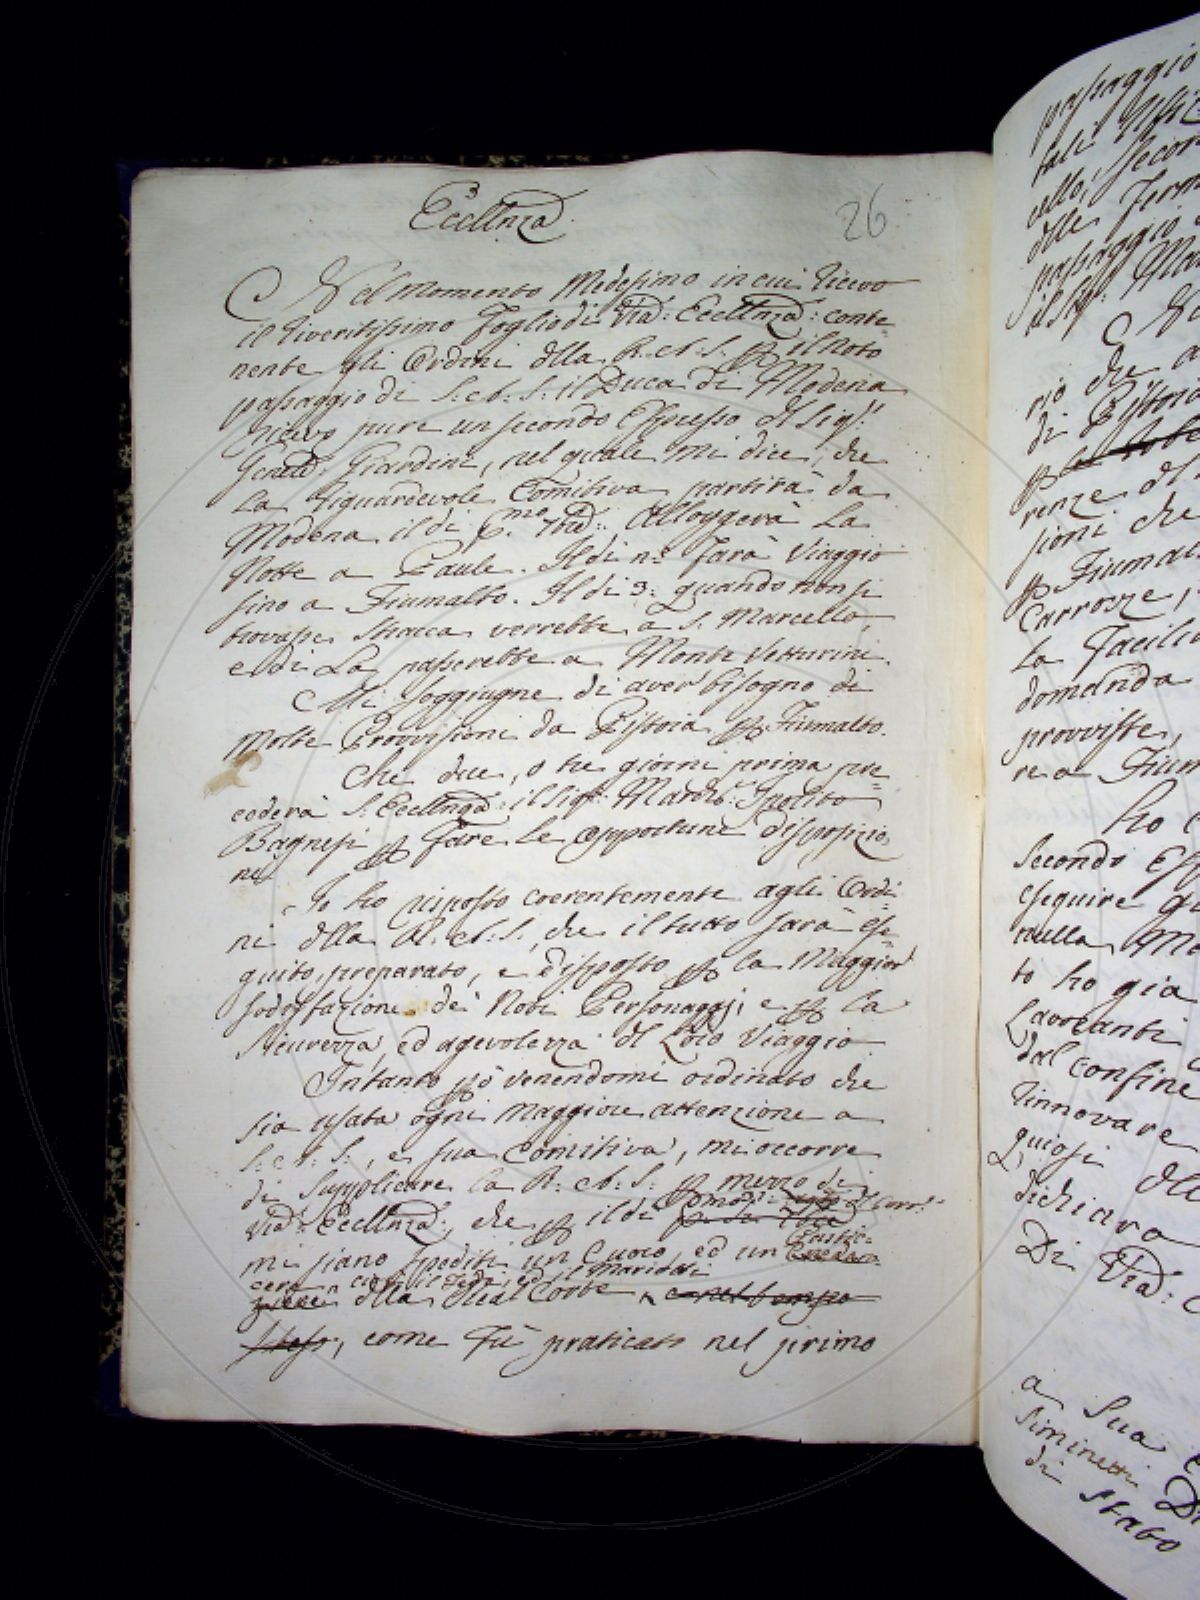 Eccllnza
26
Nel momento Medesimo in cui ricevo
il riveritissimo foglio di Vra: Eccllnza: conte
nente gli Ordini dlla R. A. S. p il noto
passaggio di S: A: S: il Duca di Modena
ricevo pure un secondo Espresso dl Sigr:
Genle: Giardini, nel quale mi dice, che
La riguardevole Comitiva partirà da
Modena il dì pmo. Alloggerà la
Notte a Paule. Il dì 2: farà viaggio
sino a Fiumalbo. Il dì 3: quando non si
trovasse stracca verrebbe a S. Marcello
e di La passerebbe a Monte Vetturini.
Mi soggiugne di aver bisogno di
molte Provvisioni da Pistoia p Fiumalbo.
Che due, o tre giorni prima pre=
cederà S. Eccllnza: il Sigr: March: Ipolito
Bagnesi p fare le opportune disposizio
ni
Io ho risposto coerentemente agli Ordi=
ni dlla R. A. S., che il tutto sarà ese=
guito, preparato, e disposto p la Maggior
sodisfazione de' Nobi Personaggi, e p la
sicurezza, ed agevolezza dl Loro Viaggio
Intanto pò venendomi ordinato che
sia usata ogni maggiore attenzione a
S: A: S:, e sua Comitiva, mi occorre
di supplicare la R: A: S: p mezzo di
Vra: Eccllnza:, che p il dì pmo dl Corr:
mi siano spediti un Cuoco, ed un Pastic=
cere cioè il ed il
dlla Real Corte e nel tempo
stesso, come fù praticato nel primo
passaggio
tali
della
passaggio
il Sigr: Mar
rio che
di Pistoia
renze dl
sioni che
p Fiumalb
Carrozze,
la facili
domanda
provviste,
re a Fium
ho
Secondo Esp
eseguire
nulla Ma
to ho già
Lavoranti
dal confine
rinnovare
dlla
dichiaro
Di Vra:
a Sua
Siminetti
di Stato